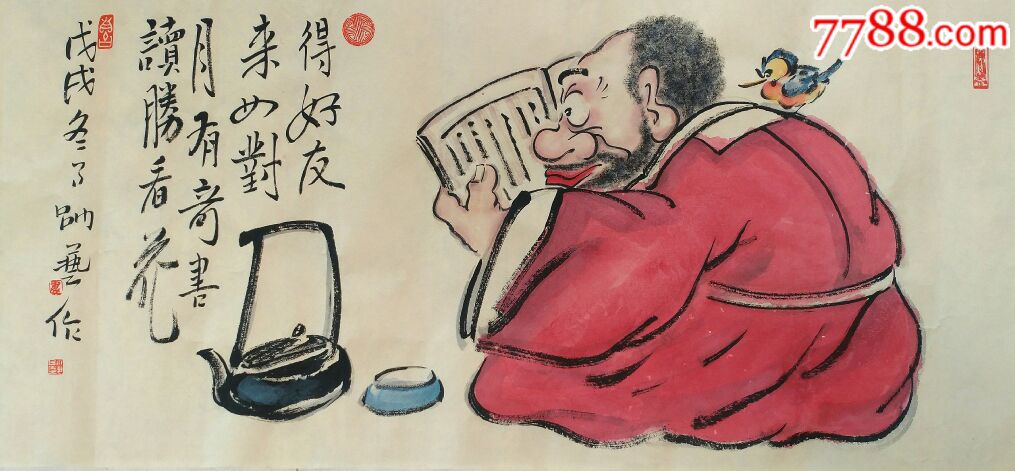 7788.com
得好友
来如對
月有奇書
讀勝看花
戊戌冬月藝作